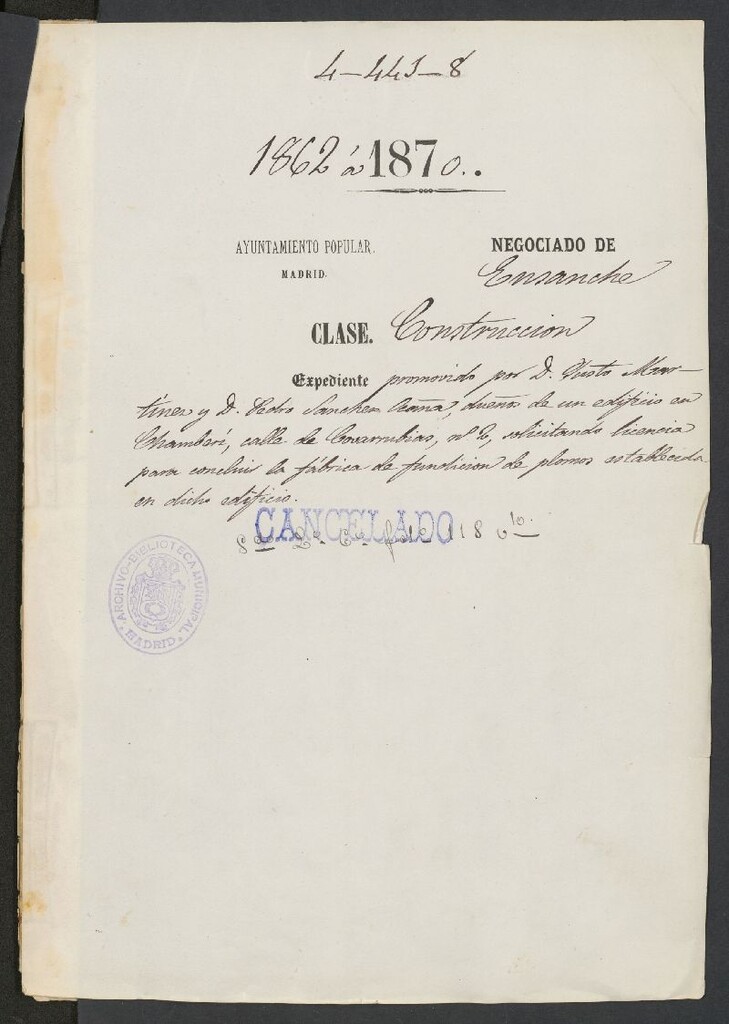 4-441-8
1862 á 1870..
AYUNTAMIENTO POPULAR.
MADRID.
NEGOCIADO DE
Ensanche
CLASE. Construccion
Expediente promovido por D. Justo Mar-
tinez y D. Pedro Sanchez Ocaña, dueños de un edificio en
Chamberí, calle de Covarrubias, nº 2, solicitando licencia
para concluir la fábrica de fundicion de plomos establecida
en dicho edificio.
CANCELADO
ARCHIVO-BIBLIOTECA MUNICIPAL
MADRID